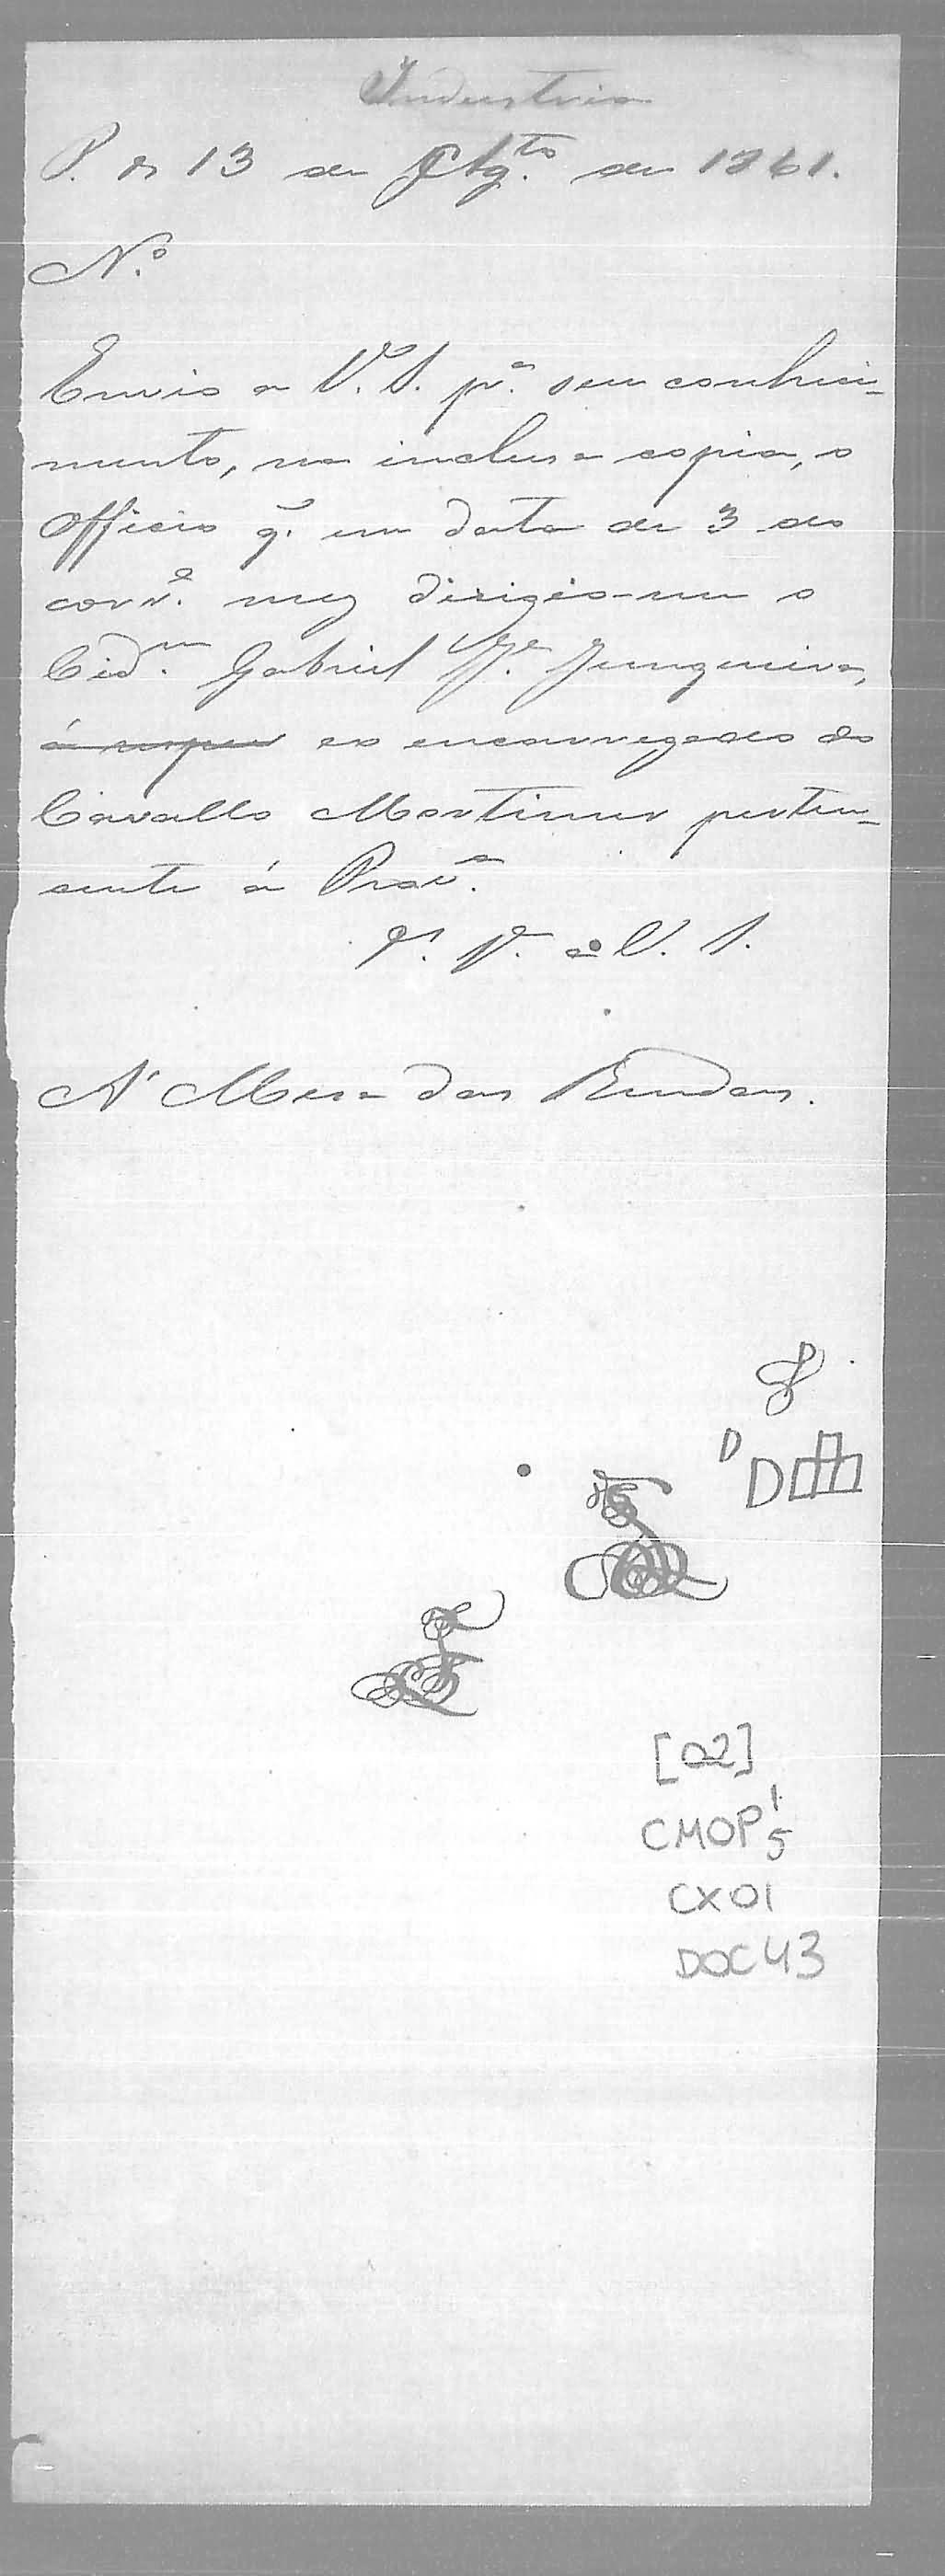 Industria
P. a 13 de Ag.to de 1861.
N.o
Envio a V. S. p.a seu conheci-
mento, na inclusa copia, o
Officio q. em data de 3 do
corr.e mez dirigio-me o
Cid.m Gabriel Fr.co Junqueira,
á respeo ex encarregado do
Cavallo Mortimer perten-
cente á Prov.a
D. G. a V. S.
A' Mesa das Rendas.
[02]
CMOP 1
5
CX01
DOC43